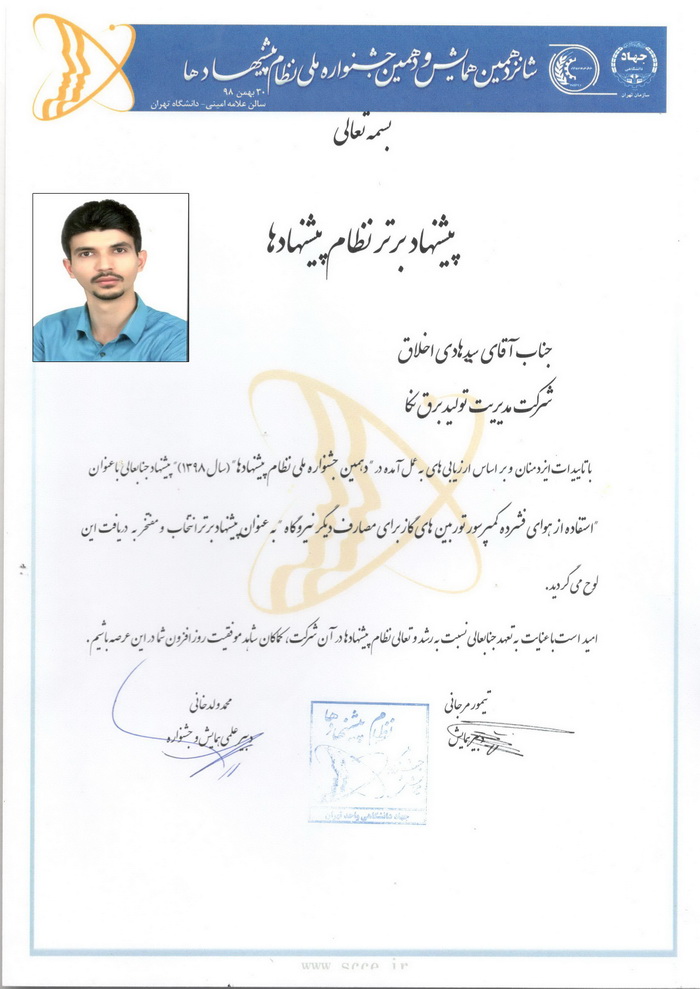 شانزدهمین همایش و دهمین جشنواره ملی نظام پیشنهادها
۳۰ بهمن ۹۸
سالن علامه امینی - دانشگاه تهران
جهاد
دانشگاهی
سازمان تهران
بسمه تعالی
پیشنهاد برتر نظام پیشنهادها
جناب آقای سید هادی اخلاق
شرکت مدیریت تولید برق نکا
با تاییدات ایزد منان و بر اساس ارزیابی های به عمل آمده در "دهمین جشنواره ملی نظام پیشنهادها" (سال ۱۳۹۸) پیشنهاد جنابعالی با عنوان
"استفاده از هوای فشرده کمپرسور توربین های گاز برای مصارف دیگر نیروگاه" به عنوان پیشنهاد برتر انتخاب و مفتخر به دریافت این
لوح می گردید.
امید است با عنایت به تعهد جنابعالی نسبت به رشد و تعالی نظام پیشنهادها در آن شرکت، کماکان شاهد موفقیت روز افزون شما در این عرصه باشیم.
تیمور مرجانی
دبیر همایش
محمد ولدخانی
دبیر علمی همایش و جشنواره
نظام پیشنهادها
جهاد دانشگاهی واحد تهران
www.scce.ir